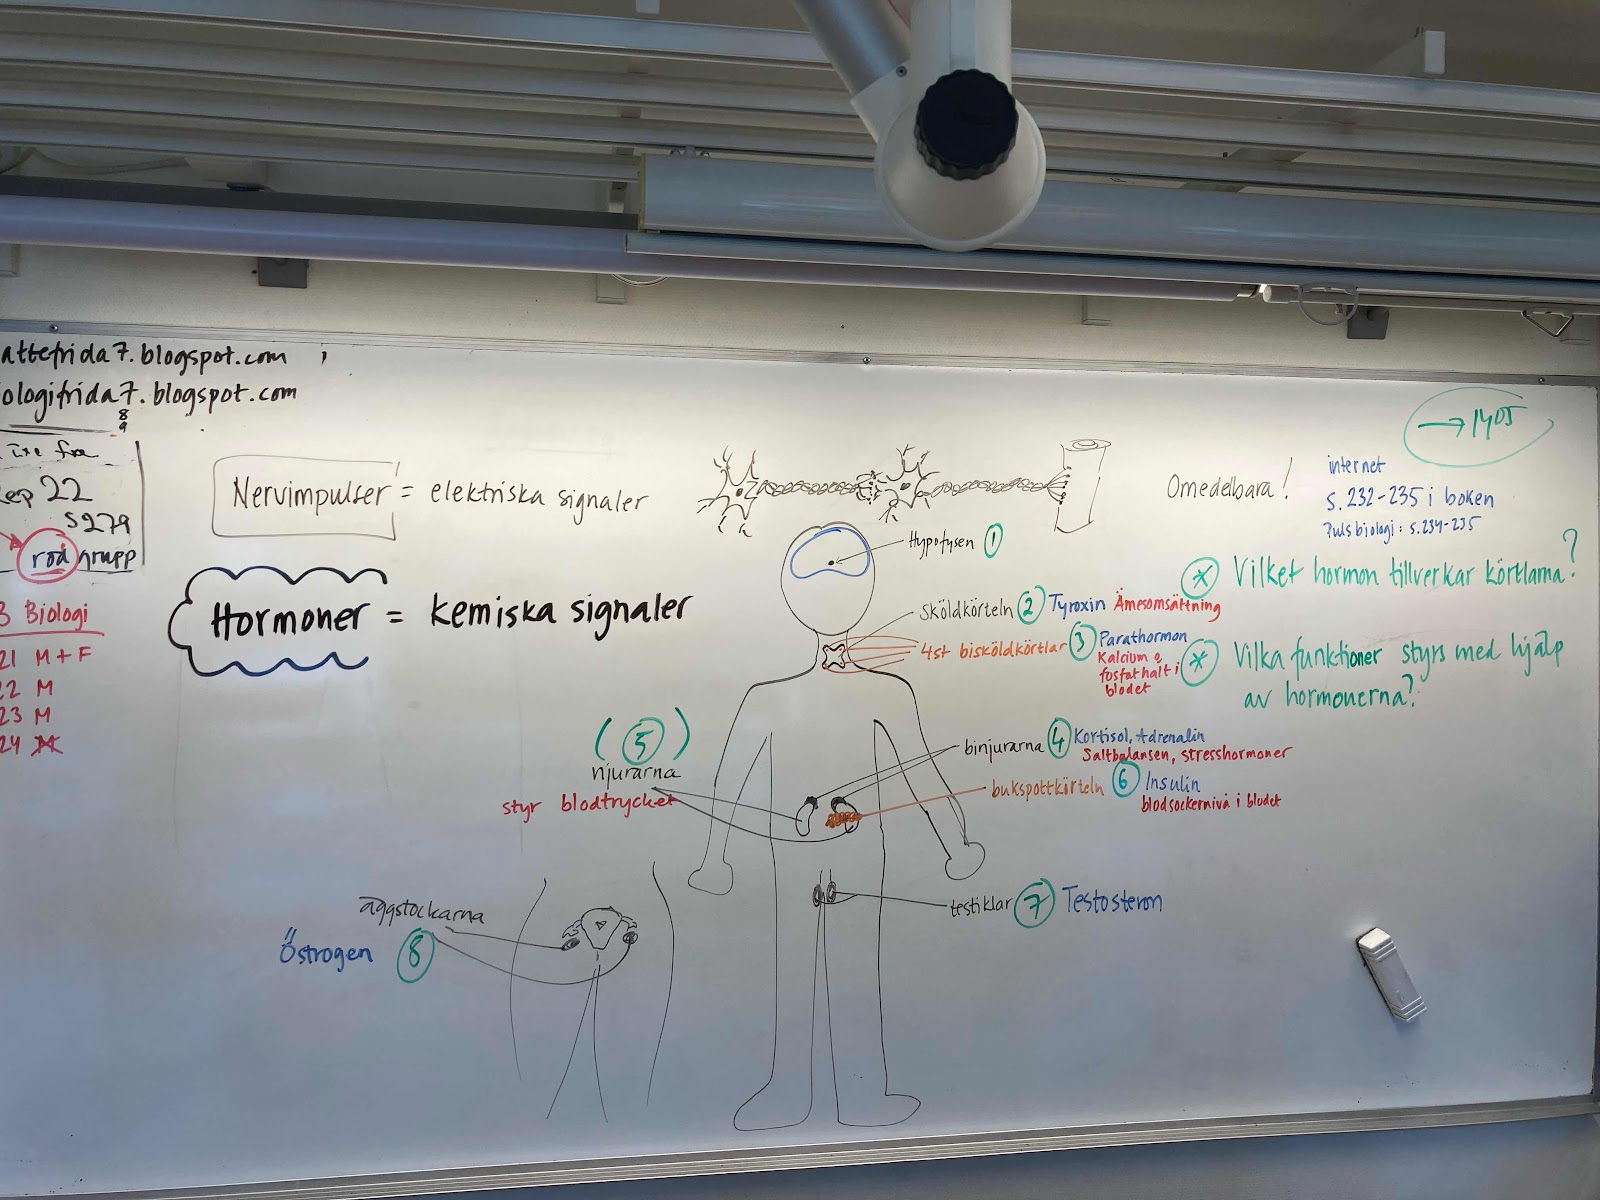 attefrida7.blogspot.com
ologifrida7.blogspot.com
8
9
22
s279
röd grupp
3 Biologi
21 M+F
22 M
23 M
24
Nervimpulser = elektriska signaler
Omedelbara!
→ 1405
internet
s. 232-235 i boken
Puls biologi: s. 234-235
Hormoner = kemiska signaler
Hypofysen 1
* Vilket hormon tillverkar körtlarna?
Sköldkörteln 2 Tyroxin Ämesomsättning
4st bisköldkörtlar 3 Parathormon
Kalcium o
fosfathalt i
blodet
* Vilka funktioner styrs med hjälp
av hormonerna?
(5)
njurarna
styr blodtrycket
binjurarna 4 Kortisol, Adrenalin
Saltbalansen, stresshormoner
bukspottkörteln 6 Insulin
blodsockernivå i blodet
testiklar 7 Testosteron
äggstockarna
Östrogen 8